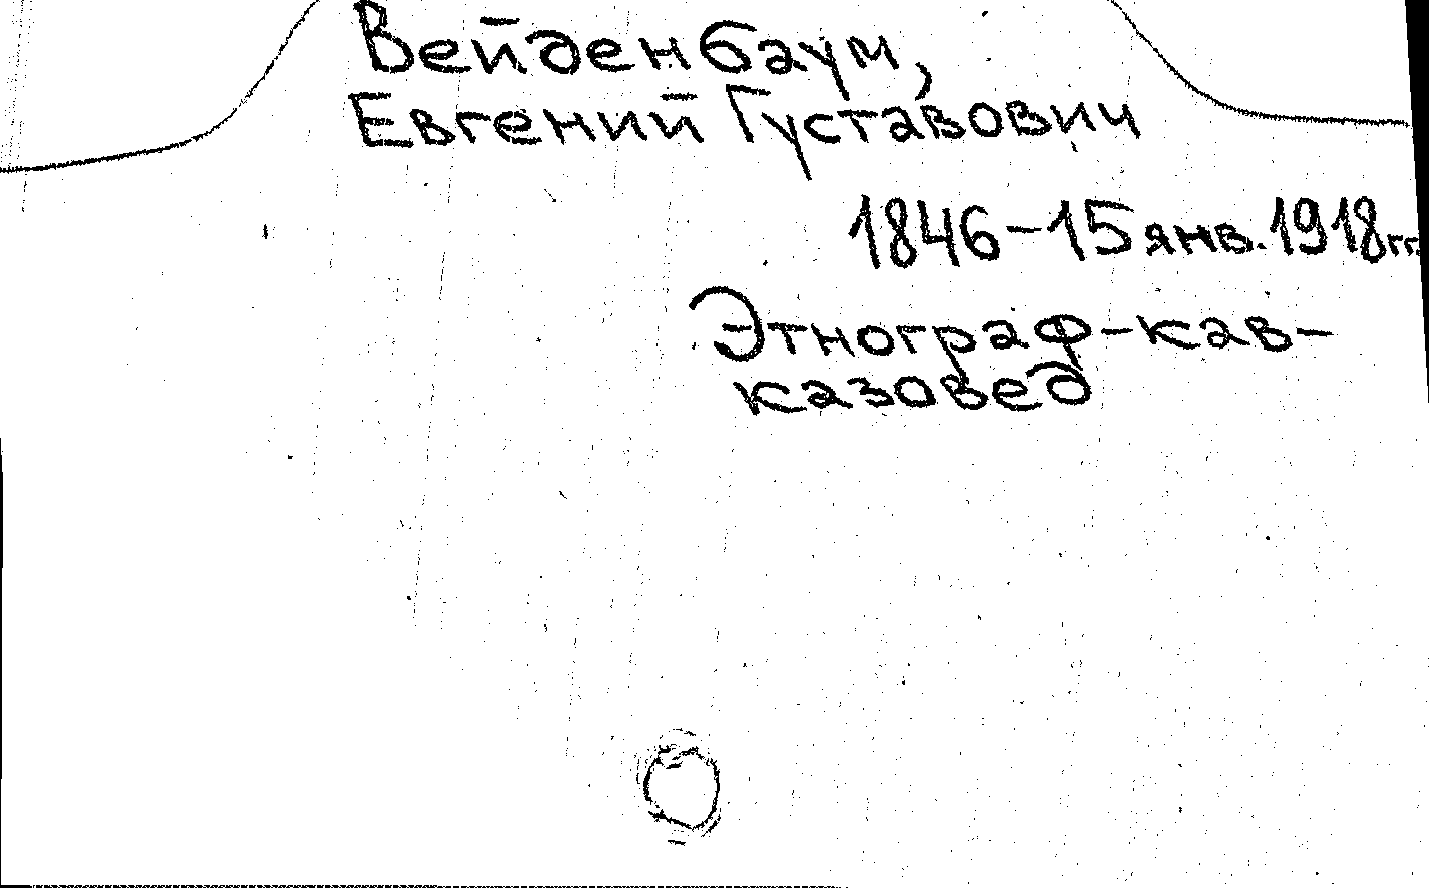 Вейденбаум,
Евгений Густавович
1846-15 янв. 1918 гг.
Этнограф-кав-
казовед